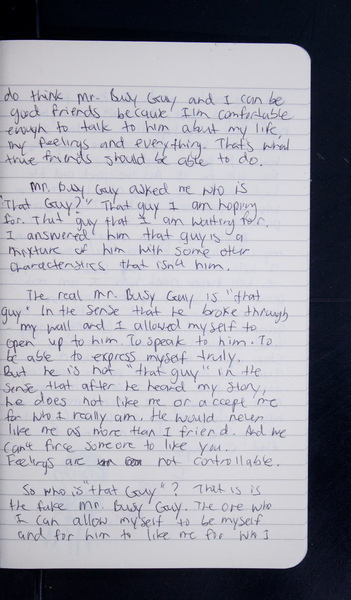 do think Mr. Busy Guy and I can be
good friends because I'm comfortable
enough to talk to him about my life,
my feelings and everything. That's what
true friends should be able to do.
Mr. Busy Guy asked me who is
"That Guy?" That guy I am hoping
for. That guy that I am waiting for.
I answered him that guy is a
mixture of him with some other
characteristics that isn't him.
The real Mr. Busy Guy is "that
guy" In the sense that he broke through
my wall and I allowed myself to
open up to him. To speak to him. To
be able to express myself truly.
But he is not "that guy" in the
sense that after he heard my story,
he does not like me or accept me
for who I really am. He would never
like me as more than I friend. And we
can't force someone to like you.
Feelings are not controllable.
So who is "that Guy"? That is is
the fake Mr. Busy Guy. The one who
I can allow myself to be myself
and for him to like me for who I